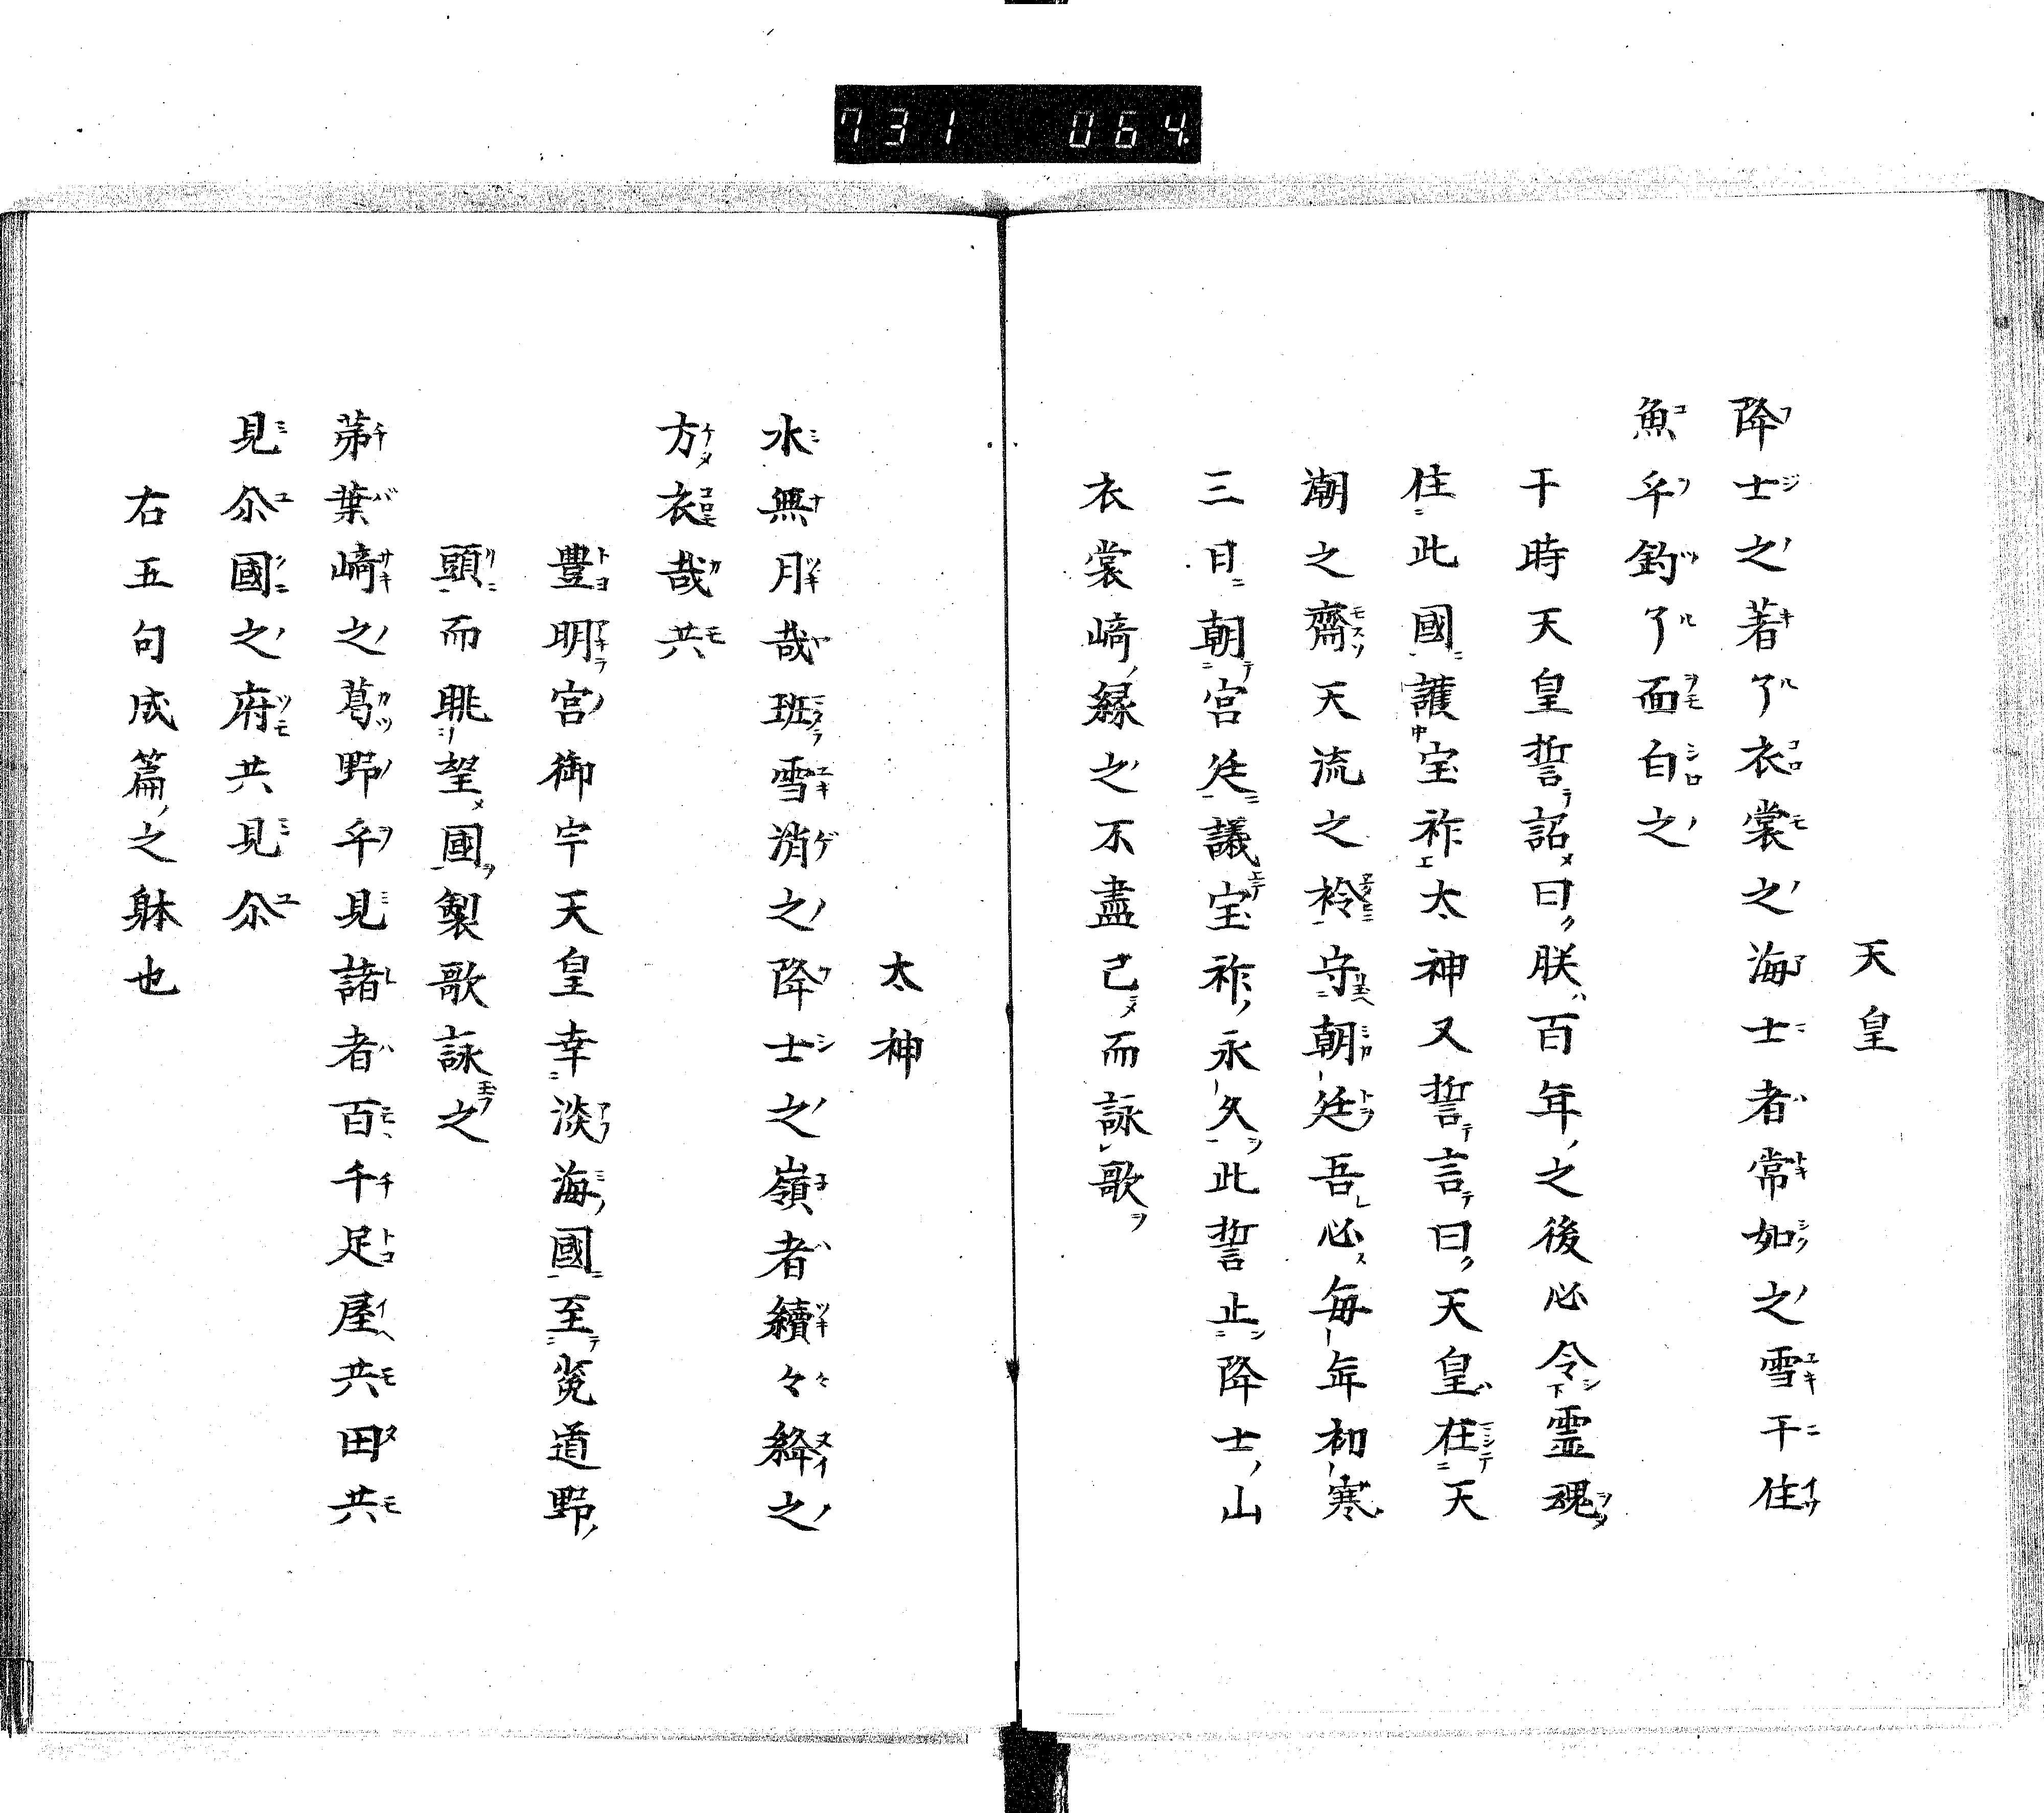 731 064
天皇
降士之著了衣裳之海士者常如之雪干住
魚乎釣了面白之
干時天皇誓詔曰朕百年之後必令霊魂
住此國護宝祚太神又誓言曰天皇在天
潮之齋天流之袊守朝廷吾必毎年初寒
三日朝宮廷議宝祚永久此誓止降士山
衣裳﨑縁之不盡已而詠歌
太神
水無月哉班雪消之降士之嶺者續々絳之
方衣哉共
豐明宮御宇天皇幸淡海國至菟道野
頭而眺望國製歌詠之
茀葉﨑之葛野乎見諸者百千足屋共田共
見尒國之府共見尒
右五句成篇之躰也